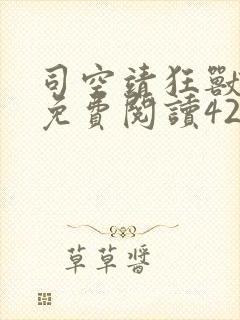 司空請狂獸
免費閱讀42
草草醬